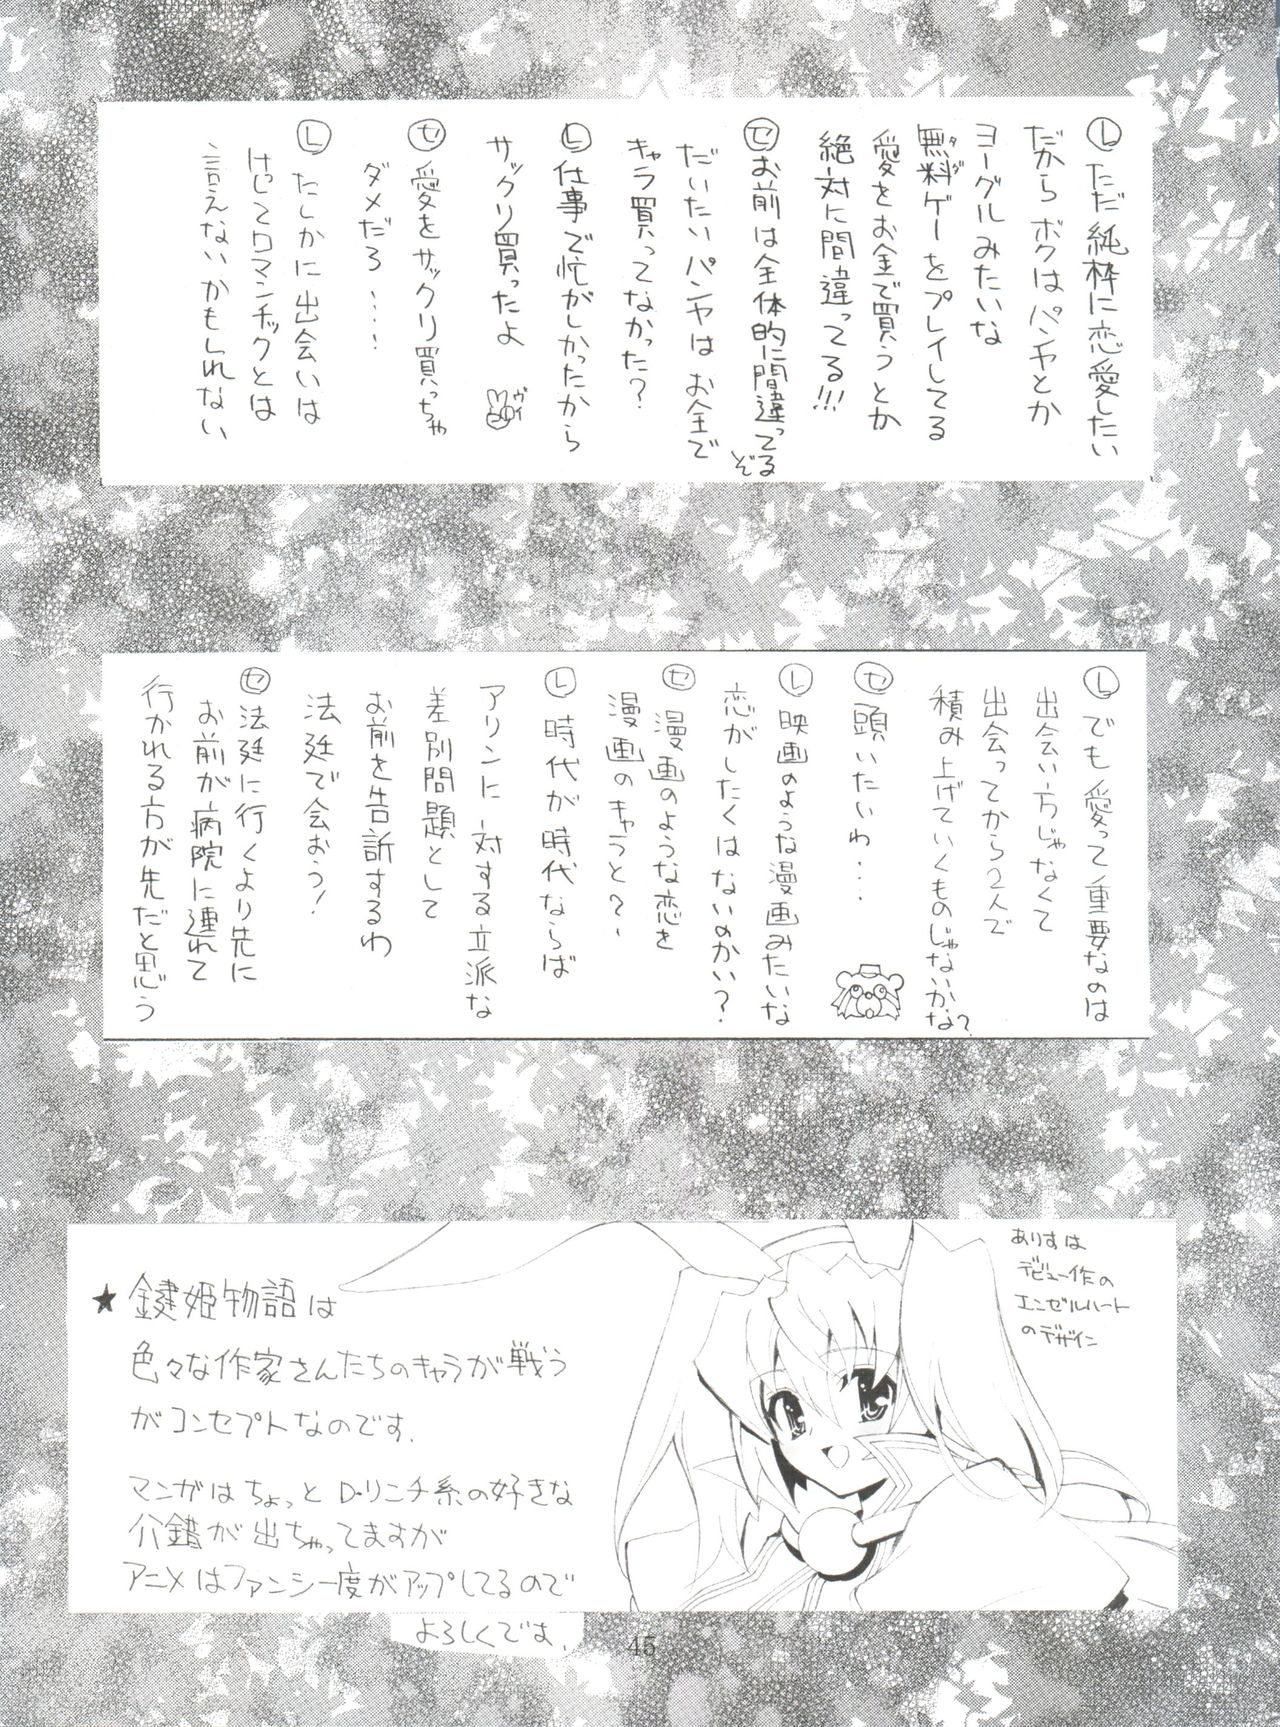 Ⓛただ純粋に恋愛したい
だからボクはパンヤとか
ヨーグルみたいな
無料ゲーをプレイしてる
タダ
愛をお金で買うとか
絶対に間違ってる!!!
セお前は全体的に間違ってるぞ
だいたいパンヤはお金で
キャラ買ってなかった?
Ⓛ仕事で忙がしかったから
サックリ買ったよ
ヴイ
セ愛をサックリ買っちゃ
ダメだろ・・・・
Ⓛたしかに出会いは
けしてロマンチックとは
言えないかもしれない
Ⓛでも愛って重要なのは
出会い方じゃなくて
出会ってから2人で
積み上げていくものじゃないかな?
セ頭いたいわ・・・
Ⓛ映画のような漫画みたいな
恋がしたくはないのかい?
セ漫画のような恋を
漫画のキャラと?
Ⓛ時代が時代ならば
アリンに対する立派な
差別問題として
お前を告訴するわ
法廷で会おう!
セ法廷に行くより先に
お前が病院に連れて
行かれる方が先だと思う
ありすは
デビュー作の
エンゼルハート
のデザイン
★鍵姫物語は
色々な作家さんたちのキャラが戦う
がコンセプトなのです.
マンガはちょっとD・リンチ系の好きな
介錯が出ちゃってますが
アニメはファンシー度がアップしてるので
よろしくです.
45